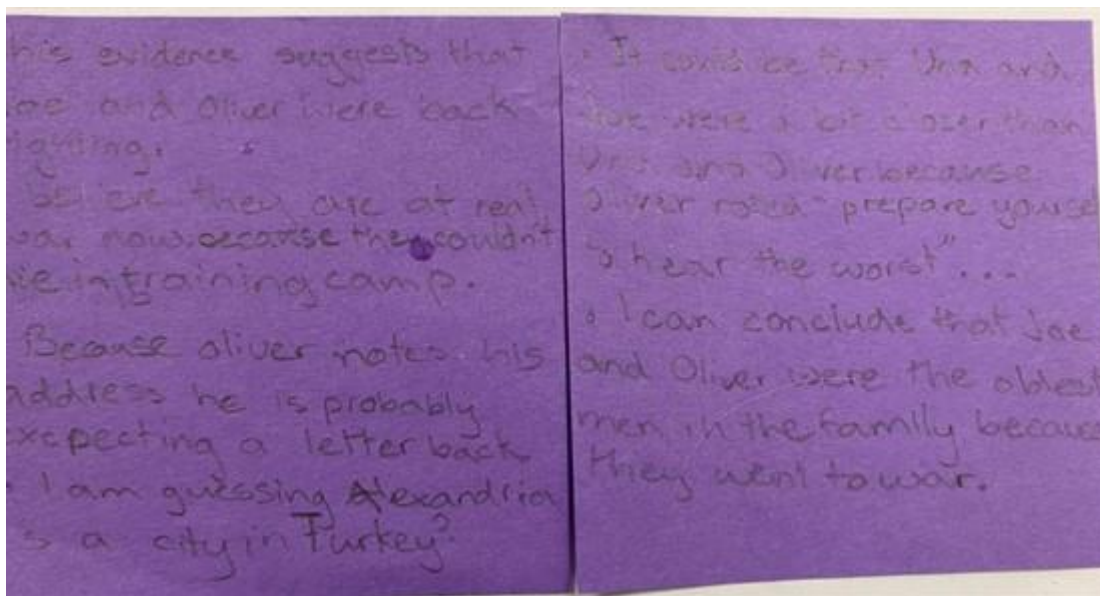 his evidence suggests that
oe and Oliver were back
ighting.
believe they are at real
war now because they couldn't
ie in training camp.
Because oliver notes his
address he is probably
expecting a letter back
I am guessing Alexandria
s a city in Turkey?
• It could be that Una and
Joe were a bit closer than
Una and Oliver because
Oliver noted "prepare yoursel
to hear the worst"...
• I can conclude that Joe
and Oliver were the oldest
men in the family because
they went to war.